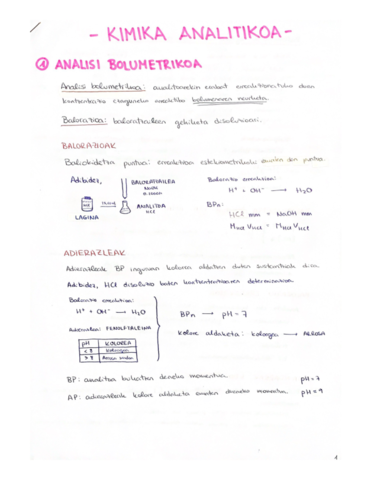 - KIMIKA ANALITIKOA -
① ANALISI BOLUMETRIKOA
Analisi bolumetrikoa: analitoarekin zerbait erreakzionatuko duen
kontzentrazio ezaguneko erreaktibo bolumenaren neurketa.
Balorazioa: baloratzailearen gehiketa disoluzioari.
BALORAZIOAK
Baliokidetza puntua: erreakzioa estekiometrikoki ematen den puntua.
Adibidez,
BALORATZAILEA
NaOH
LAGINA
ANALITOA
HCl
Balorazio erreakzioa:
H⁺ + OH⁻ → H₂O
BPn:
HCl mm = NaOH mm
ADIERAZLEAK
Adierazleak BP inguruan kolorea aldatzen duten substantziak dira.
Adibidez, HCl disoluzio baten kontzentrazioaren determinazioa.
Balorazio erreakzioa:
H⁺ + OH⁻ → H₂O
Adierazlea: FENOLFTALEINA
pH KOLOREA
< 8 Kolorgea
> 8 Arrosa
BPn → pH = 7
Kolore aldaketa: kolorgea → ARROSA
BP: analitoa bukatzen deneko momentua. pH = 7
AP: adierazleak kolore aldaketa ematen dueneko momentua. pH = 9
4